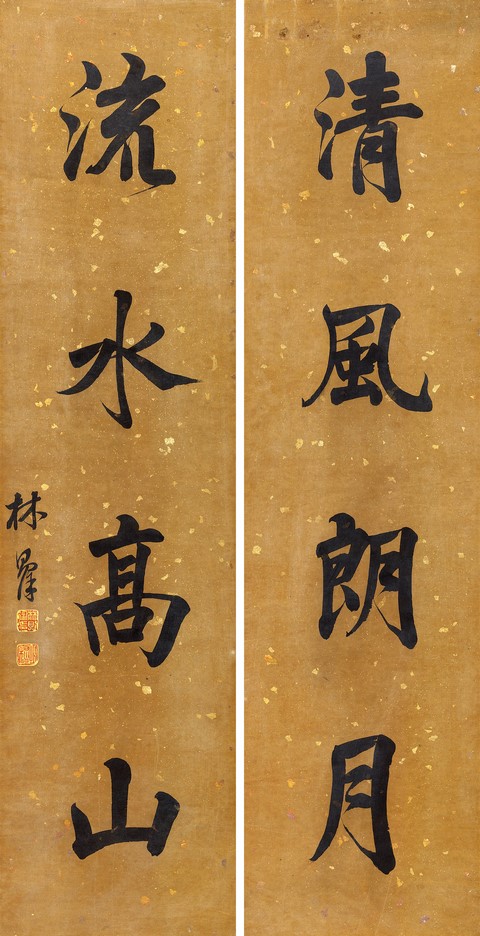 清風朗月
流水髙山
林